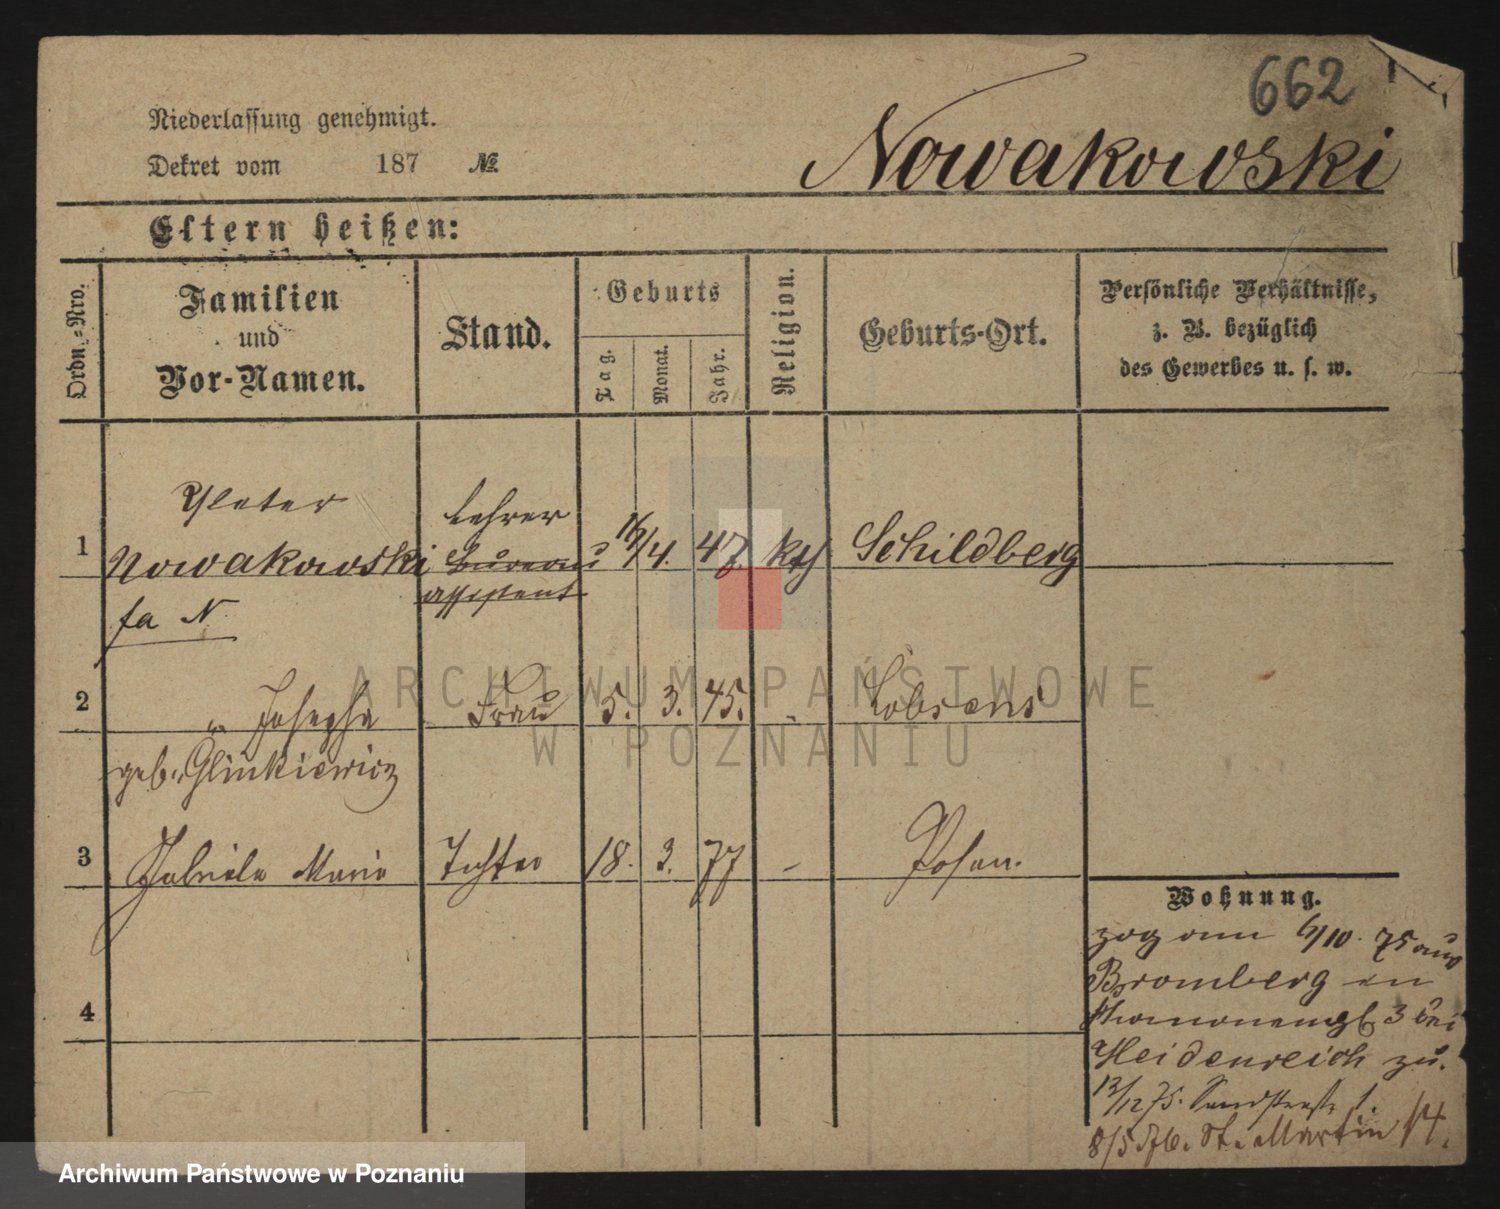 662
Niederlassung genehmigt.
Dekret vom 187 №
Nowakowski
Eltern heißen:
Ordn.-Nro.
Familien
und
Vor-Namen.
Stand.
Geburts
Tag.
Monat.
Jahr.
Religion.
Geburts-Ort.
Persönliche Verhältnisse,
z. B. bezüglich
des Gewerbes u. s. w.
1
Peter
Nowakowski
fa N
Lehrer
Bureau
assistent
16/4. 47. kth Schildberg
2
" Josepha
geb. Glinkiewicz
Frau 5. 3. 45. - Lobsens
3
Gabriele Maria Tochter 18. 3. 77 - Posen.
4
Wohnung.
zog am 6/10. 75 aus
Bromberg
3 bei
Heidenreich zu.
13/12 75. Sandstraße 1.
8/5 76. St. Martin 14.
ARCHIWUM PAŃSTWOWE
W POZNANIU
Archiwum Państwowe w Poznaniu